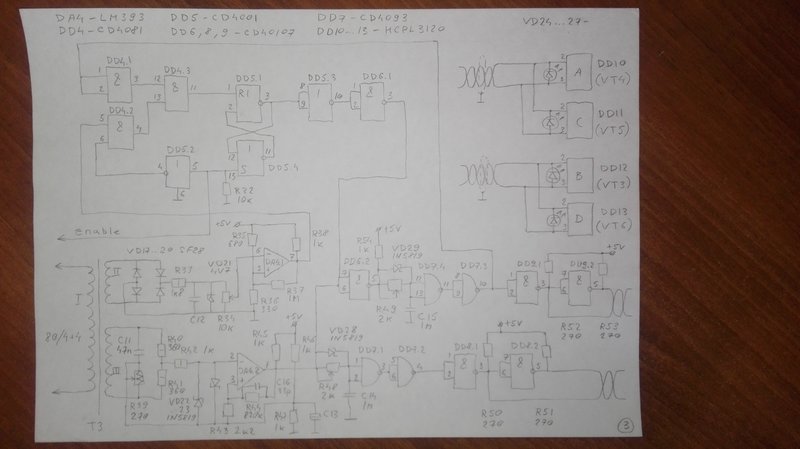 DA4-LM393 DD5-CD4001 DD7-CD4093
DD4-CD4081 DD6,8,9-CD40107 DD10...13-HCPL3120
VD24...27-
DD4.1
DD4.3
DD5.1
DD5.3
DD6.1
DD4.2
DD5.2
DD5.4
R32
10k
enable
DD10
(VT4)
DD11
(VT5)
DD12
(VT3)
DD13
(VT6)
A
C
B
D
I
I
+5V
R35
680
R38
1k
DA4.1
VD17...20 SF28
R33
VD21
4V7
R37
1M
R36
330
C12
R34
10k
I
II
80/4+4
III
T3
C11
47n
R40
360
R41
360
R42 1k
R39
270
VD22
23
1N5819
DA4.2
R43 2k2
R44
820k
C16
33p
R45
1k
+5V
R46
1k
R47
1k
C13
R54
1k
+5V
VD29
1N5819
DD6.2
DD7.4
DD7.3
R49
2k
C15
1n
VD28
1N5819
DD7.1
DD7.2
R48
2k
C14
1n
DD9.1
DD9.2
+5V
R52
270
R53
270
DD8.1
DD8.2
+5V
R50
270
R51
270
3